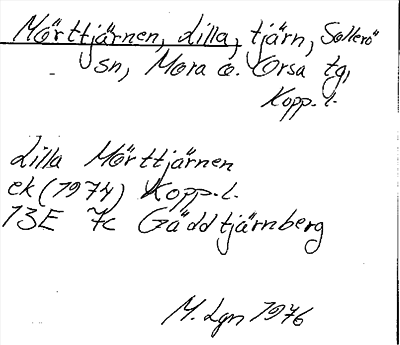 Mörttjärnen, Lilla, tjärn, Sollerö
sn, Mora o. Orsa tg,
Kopp. l.
Lilla Mörttjärnen
ek (1974) Kopp. l.
13E 7c Gäddtjärnberg
M. Lgn 1976